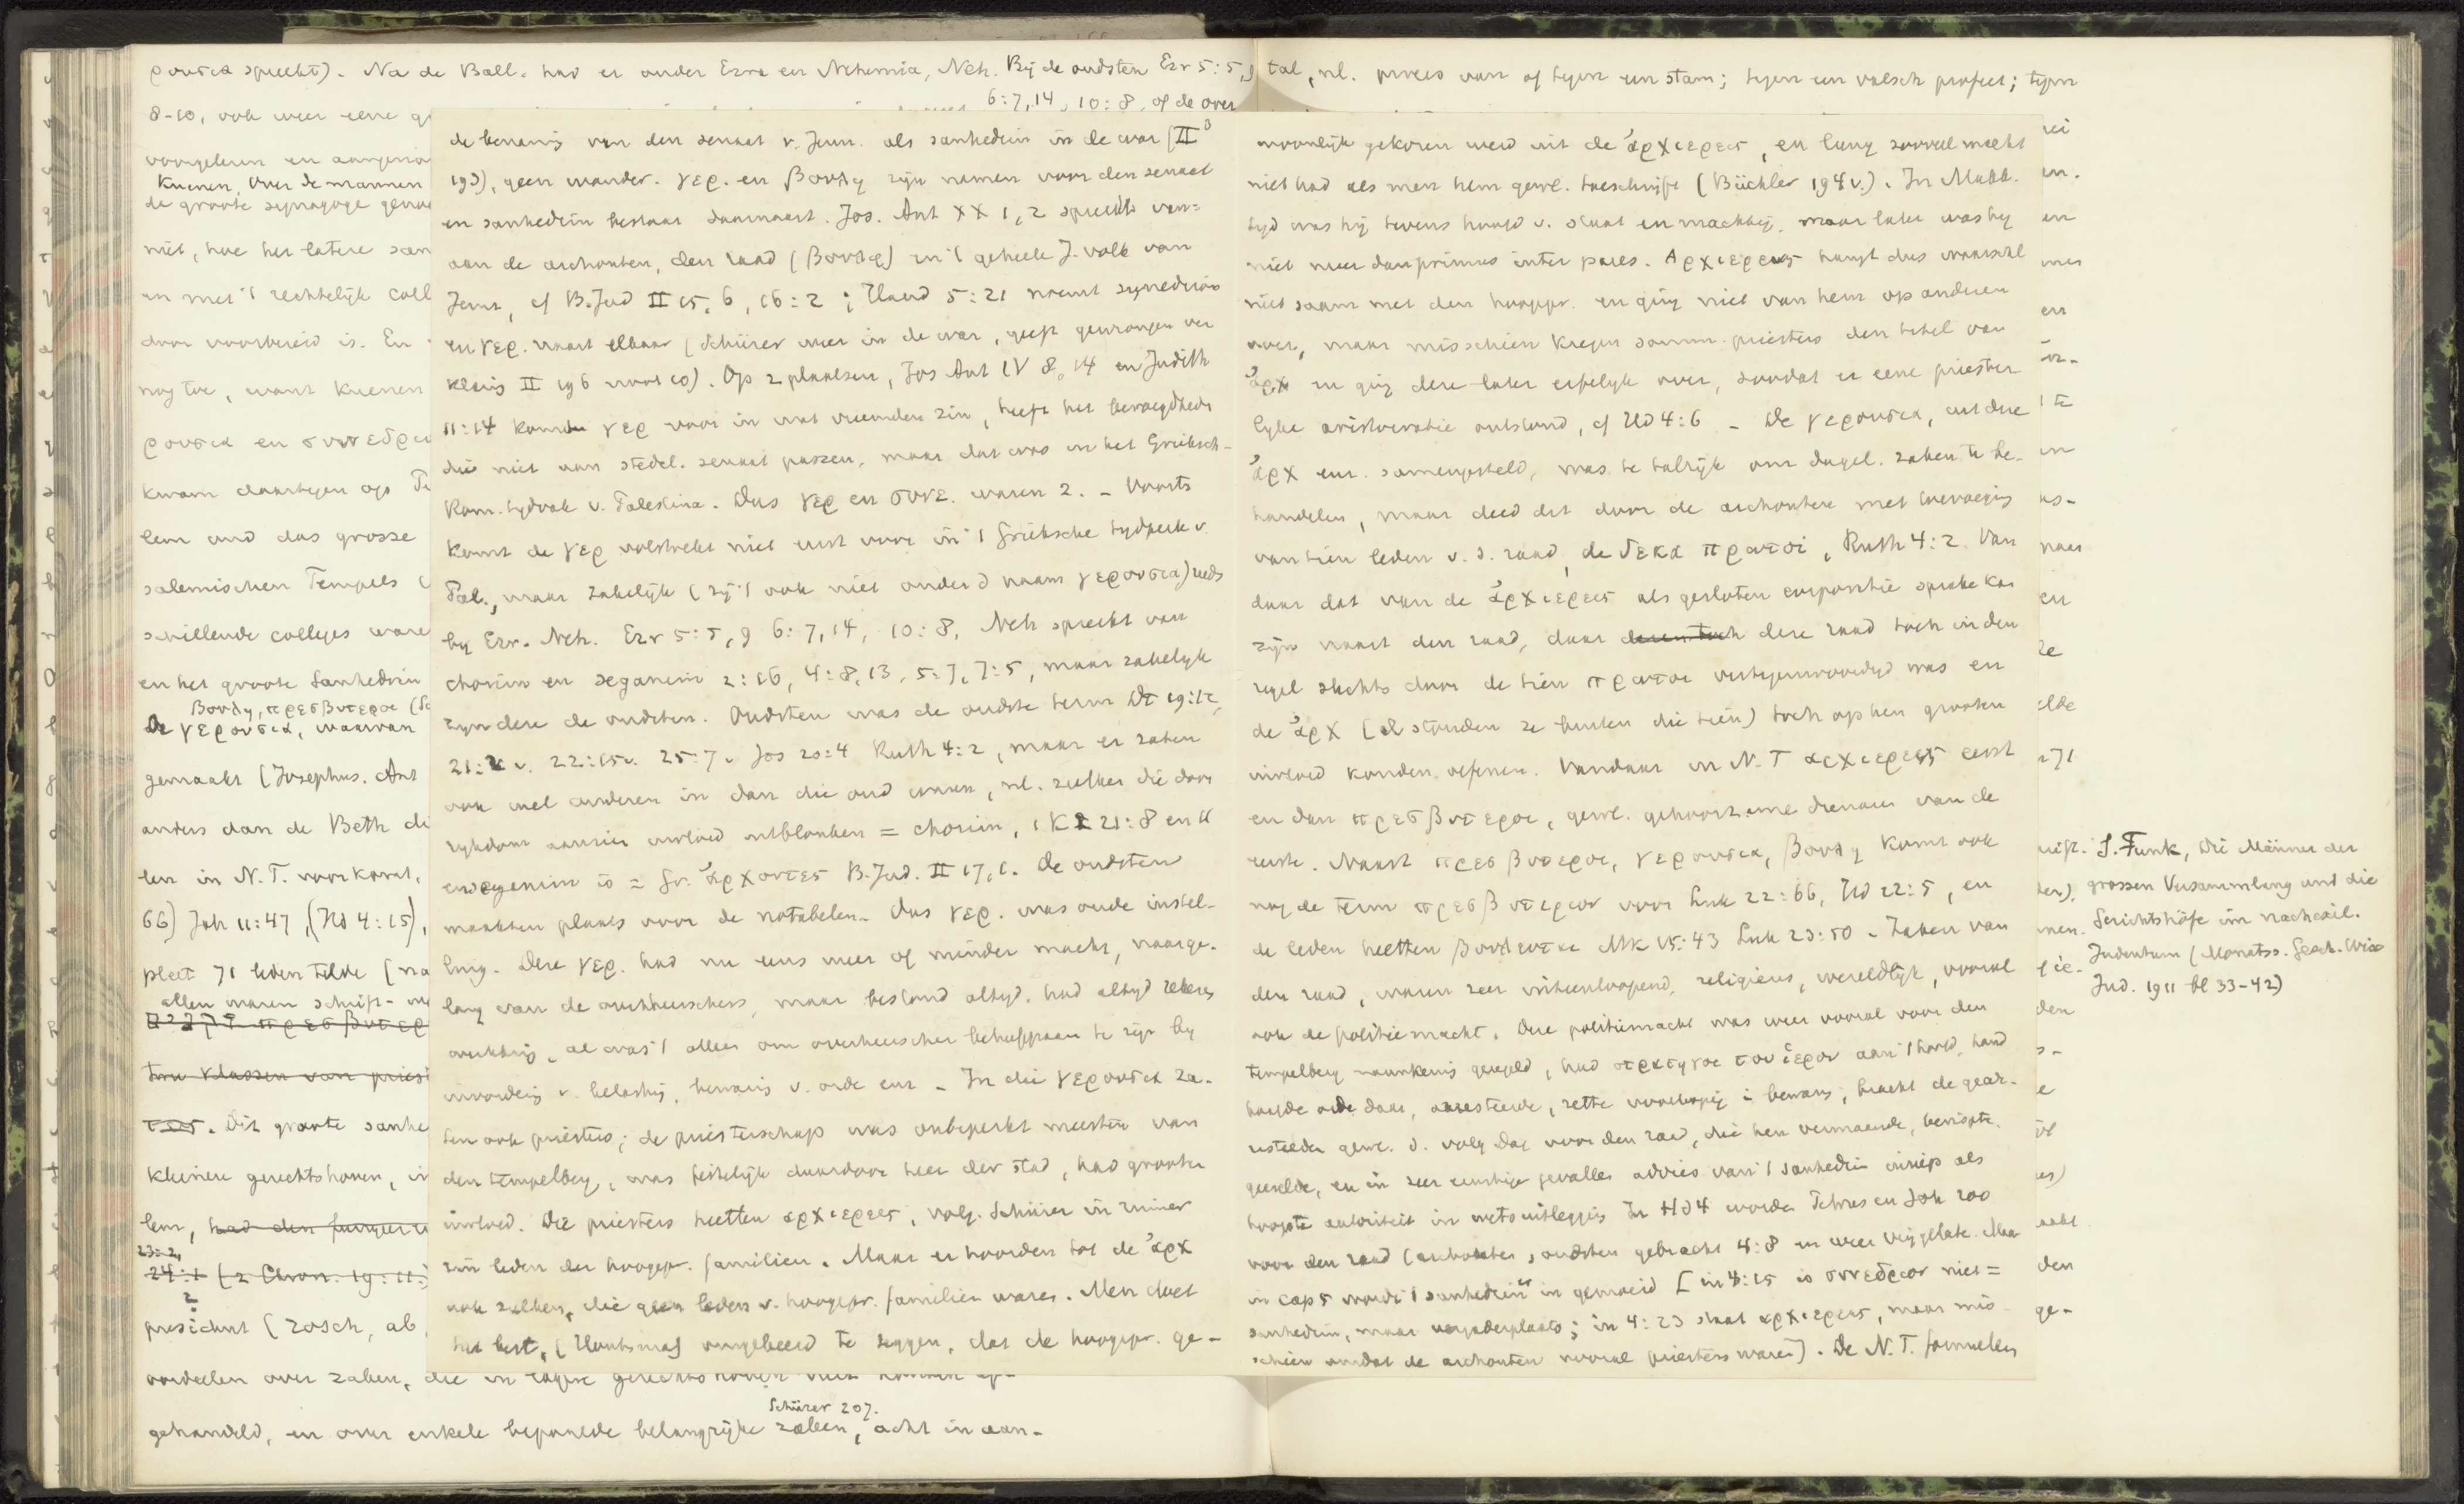 ρουσια spreekt). Na de Ball. had er onder Ezra en Nehemia, Neh. Bij de oudsten Ezr 5:5,9
6:7,14, 10:8, of de over
8-10, ook weer eene
voorgelezen en
Kuenen, Over de mannen
de groote synagoge
niet, hoe het latere san
en met 't rechtelijk coll
door voorbereid is. En
nog toe, want Kuenen
ρουσια en συνεδρι
kwam daartegen op
lem und das grosse
salemischen Tempels
schillende colleges ware
en het groote Sanhedrin
Βουλη, πρεσβυτεροι
De γερουσια, waarvan
gemaakt (Josephus. Ant
anders dan de Beth di
len in N.T. voorkomt,
66) Joh 11:47, (Hd 4:15),
pleet 71 leden telde (na
allen waren schrift-
πρεσβυτερ
twee klassen van priest
Dit groote sanhe
kleinere gerechtshoven, in
lem, had den
23:2,
24:1 (2 Chron. 19:11
2
president (zosch, ab
oordeelen over zaken, die in lagere gerechtshoven niet konden
Schürer 207.
gehandeld, en over enkele bepaalde belangrijke zaken, acht in aan-
de benaming van den senaat v. Jeruz. als sanhedrin in de war (II³
193), geen wonder. γερ. en βουλη zijn namen voor den senaat
en sanhedrin bestaat daarnaast. Jos. Ant XX 1, 2 spreekt van:
aan de archonten, den raad (βουλη) en 't geheele J. volk van
Jeruz, cf B.Jud II 15, 6, 16:2; Hand 5:21 noemt synedrion
en γερ. naast elkaar (Schürer weer in de war, geeft gewrongen ver
klaring II 196 noot 10). Op 2 plaatsen, Jos Ant IV 8, 14 en Judith
11:14 komt γερ voor in wat vreemden zin, heeft het bevoegdheden
die niet aan stedel. senaat passen, maar dat was in het Grieksch-
Rom. tijdvak v. Palestina. Dus γερ en συνε. waren 2. – Voorts
komt de γερ volstrekt niet eerst voor in 't Grieksche tijdperk v.
Pal., maar zakelijk (zij 't ook niet onder d naam γερουσια) reeds
bij Ezr. Neh. Ezr 5:5, 9 6:7, 14, 10:8, Neh spreekt van
chorim en seganim 2:16, 4:8, 13, 5:7, 7:5, maar zakelijk
zijn deze de oudsten. Oudsten was de oudste term Dt 19:12,
21:2v. 22:15v. 25:7v Jos 20:4 Ruth 4:2, maar er zaten
ook wel anderen in dan die oud waren, nl. zulken die door
rijkdom aanzien invloed uitblonken = chorim, 1 K 21:8 en 11
en seganim is = Gr. ἀρχοντες B.Jud. II 17,1. De oudsten
maakten plaats voor de notabelen. Dus γερ. was oude instel-
ling. Deze γερ. had nu eens meer of minder macht, naarge-
lang van de overheerschers, maar bestond altijd. had altijd zekere
al was 't alleen om overheerscher behulpzaam te zijn bij
invordering v. belasting, bewaring v. orde enz – In die γερουσια za-
ten ook priesters; de priesterschap was onbeperkt meester van
den tempelberg, was feitelijk daardoor heer der stad, had grooten
invloed. Die priesters heetten αρχιερεις, volg. Schürer in ruimer
zin leden der hoogepr. familien. Maar er hoorden tot de ἀρχ
ook zulken, die geen leden v. hoogepr. familien waren. Men doet
het best, (Houtsma) ongelbeerd te zeggen, dat de hoogepr. ge-
tal, nl. proces van of tegen een stam; tegen een valsch profeet; tegen
woonlijk gekozen werd uit de ἀρχιερεις, en lang zooveel macht
niet had als men hem gewl. toeschrijft (Büchler 194v.). In Makk.
tijd was hij tevens hoofd v. staat en maatschij, maar later was hij
niet meer dan primus inter pares. Ἀρχιερευς hangt dus waarschl
niet saam met den hoogepr. en ging niet van hem op anderen
over, maar misschien kregen somm. priesters den titel van
ἀρχ en ging deze later erfelijk over, zoodat er eene priester
lijke aristocratie ontstond, cf Hd 4:6 – De γερουσια, uit deze
ἀρχ enz. samengesteld, was te talrijk om dagel. zaken te be-
handelen, maar deed dit door de archonten met toevoeging
van tien leden v. d. raad, de δεκα πρωτοι, Ruth 4:2. Van
daar dat van de ἀρχιερεις als gesloten corporatie sprake kon
zijn naast den raad, daar deze raad toch in den
regel slechts door de tien πρωτοι vertegenwoordigd was en
de ἀρχ (al stonden ze buiten die tien) toch op hen grooten
invloed konden oefenen. Vandaar in N.T αρχιερεις eerst
en dan πρεσβυτεροι, gewl. gehoorzame dienaars van de
eerste. Naast πρεσβυτεροι, γερουσια, βουλη komt ook
nog de term πρεσβυτεριον voor Luk 22:66, Hd 22:5, en
de leden heetten βουλευται Mk 15:43 Luk 23:50 – Zaken van
den raad, waren zeer uiteenloopend, religieus, wereldlijk, vooral
ook de politiemacht. Deze politiemacht was weer vooral voor den
tempelberg nauwkeurig geregeld, had στρατηγος του ἱερου aan 't hoofd, hand
haafde orde daar, arresteerde, zette voorloopig in bewaring, bracht de gear-
resteerden gewl. d. volg. dag voor den raad, die hen vermaande, berispte,
geeselde, en in zeer ernstige gevallen advies van 't sanhedrin inriep als
hoogste autoriteit in wetsuitlegging. In Hd 4 worden Petrus en Joh zoo
voor den raad (archonten, oudsten gebracht 4:8 en weer vrijgelate. Maar
in cap 5 wordt 't sanhedrin er in gemoeid [in 4:15 is συνεδριον niet =
sanhedrin, maar vergaderplaats; in 4:23 staat αρχιερεις, maar mis
schien omdat de archonten vooral priesters waren]. De N.T. formuelen
S. Funk, Die Männer der
grossen Versammlung und die
Gerichtshöfe im nachexil.
Judentum (Monatss. Gesch. Wiss
Jud. 1911 bl 33-42)